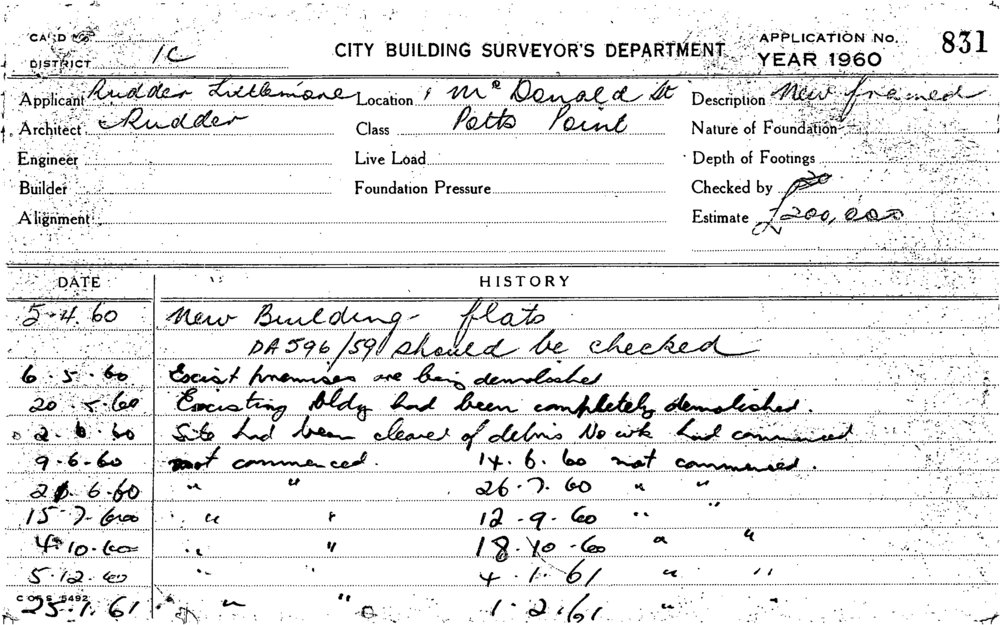 CARD
DISTRICT 1C
CITY BUILDING SURVEYOR'S DEPARTMENT
APPLICATION No. 831
YEAR 1960
Applicant Rudder Littlemore Location 1 McDonald St Description New framed
Architect Rudder Class Potts Point Nature of Foundation
Engineer Live Load Depth of Footings
Builder Foundation Pressure Checked by
Alignment Estimate £200,000
DATE HISTORY
5-4.60 New Building - flats
DA 596/59 should be checked
6.5.60 Exist premises are being demolished
20.5.60 Existing bldg had been completely demolished.
2.6.60 Site had been cleared of debris No wk had commenced
9-6-60 not commenced. 14.6.60 not commenced.
6.60 " " 26.7.60 " "
15.7.60 " " 12-9-60 " "
4.10.60 " " 18.10.60 " "
5.12.60 " " 4.1.61 " "
COFS 5492
25.1.61 " " 1.2.61 " "